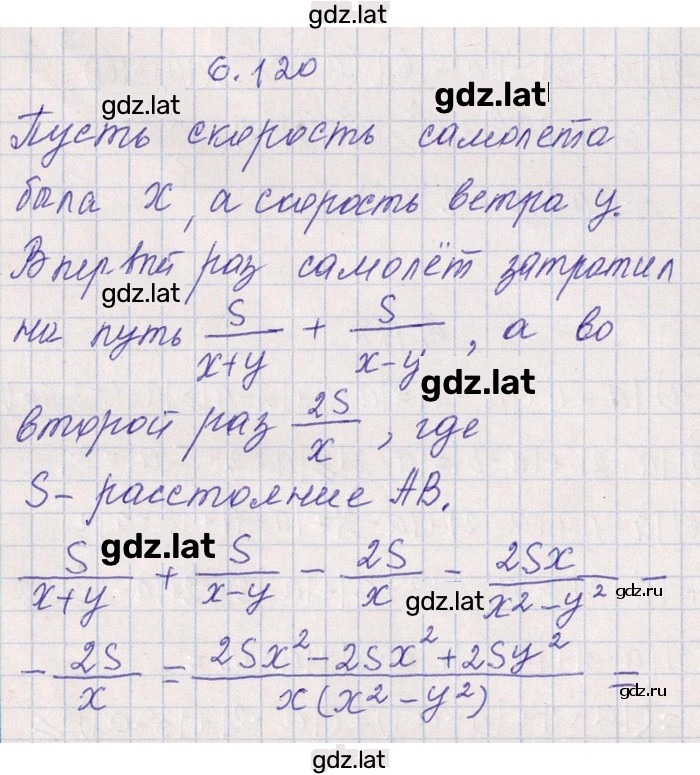 gdz.lat
6.120
gdz.lat gdz.lat
Пусть скорость самолета
была x, а скорость ветра y.
В первый раз самолёт затратил
gdz.lat
на путь S/(x+y) + S/(x-y), а во
gdz.lat
второй раз 2S/x, где
S- расстояние AB.
gdz.lat
S/(x+y) + S/(x-y) - 2S/x - 2Sx/(x²-y²) -
gdz.lat gdz.ru
- 2S/x = (2Sx²-2Sx²+2Sy²)/(x(x²-y²)) =
gdz.ru
gdz.lat